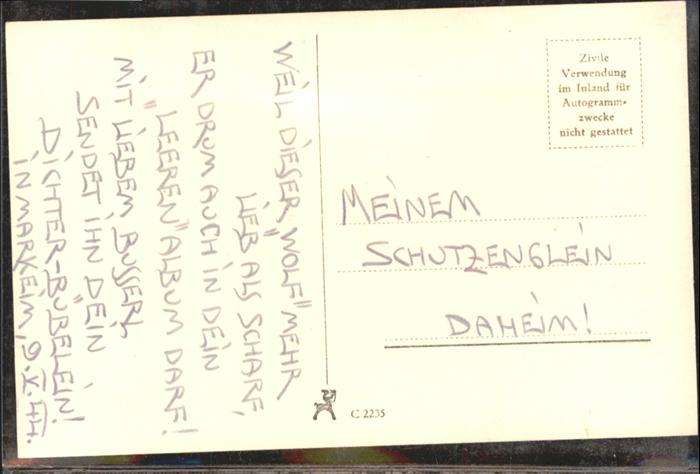 WEIL DIESER „WOLF" MEHR
LIEB ALS SCHARF,
ER DRUM AUCH IN DEIN
"LEEREN" ALBUM DARF!
MIT LIEBEM BUSSERL
SENDET IHN DEIN
DICHTER-BÜBELEIN!
IN MARKEIM, 9.V.44.
Zivile
Verwendung
im Inland für
Autogramm-
zwecke
nicht gestattet
MEINEM
SCHUTZENGLEIN
DAHEIM!
C 2235